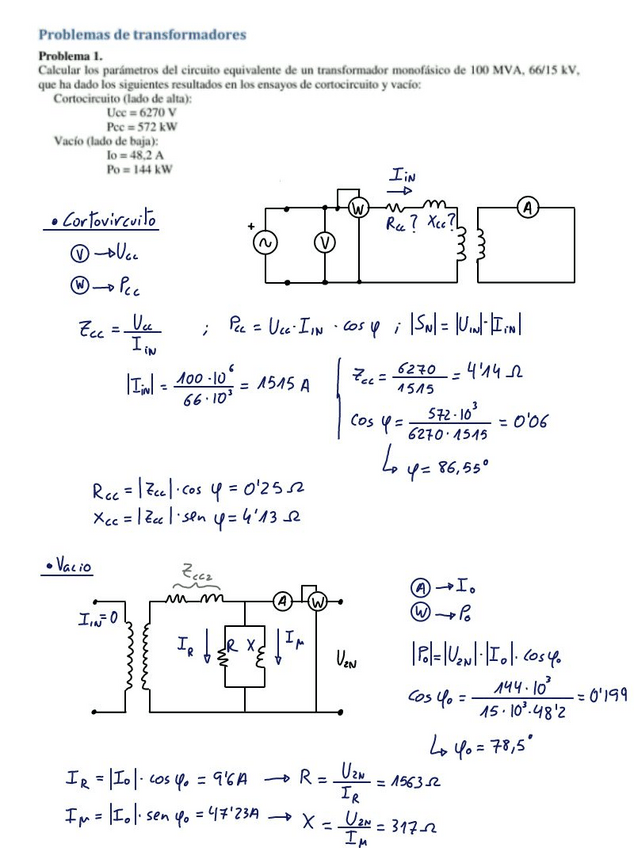 Problemas de transformadores
Problema 1.
Calcular los parámetros del circuito equivalente de un transformador monofásico de 100 MVA, 66/15 kV,
que ha dado los siguientes resultados en los ensayos de cortocircuito y vacío:
Cortocircuito (lado de alta):
Ucc = 6270 V
Pcc = 572 kW
Vacío (lado de baja):
Io = 48,2 A
Po = 144 kW
I_IN
W
A
Rcc? Xcc?
+
V
• Cortovircuito
V → Ucc
W → Pcc
Zcc = Ucc / I_IN ; Pcc = Ucc · I_IN · cos φ ; |S_N| = |U_IN|·|I_IN|
|I_IN| = 100·10^6 / 66·10^3 = 1515 A
Zcc = 6270 / 1515 = 4'14 Ω
cos φ = 572·10^3 / 6270·1515 = 0'06
↳ φ = 86,55°
Rcc = |Zcc|·cos φ = 0'25 Ω
Xcc = |Zcc|·sen φ = 4'13 Ω
• Vacio
Zcc2
I_IN=0
A
W
I_R
R X
I_M
U_2N
A → I_0
W → P_0
|P_0| = |U_2N|·|I_0|·cos φ_0
cos φ_0 = 144·10^3 / 15·10^3·48'2 = 0'199
↳ φ_0 = 78,5°
I_R = |I_0|·cos φ_0 = 9'6A → R = U_2N / I_R = 1563 Ω
I_M = |I_0|·sen φ_0 = 47'23A → X = U_2N / I_M = 317 Ω